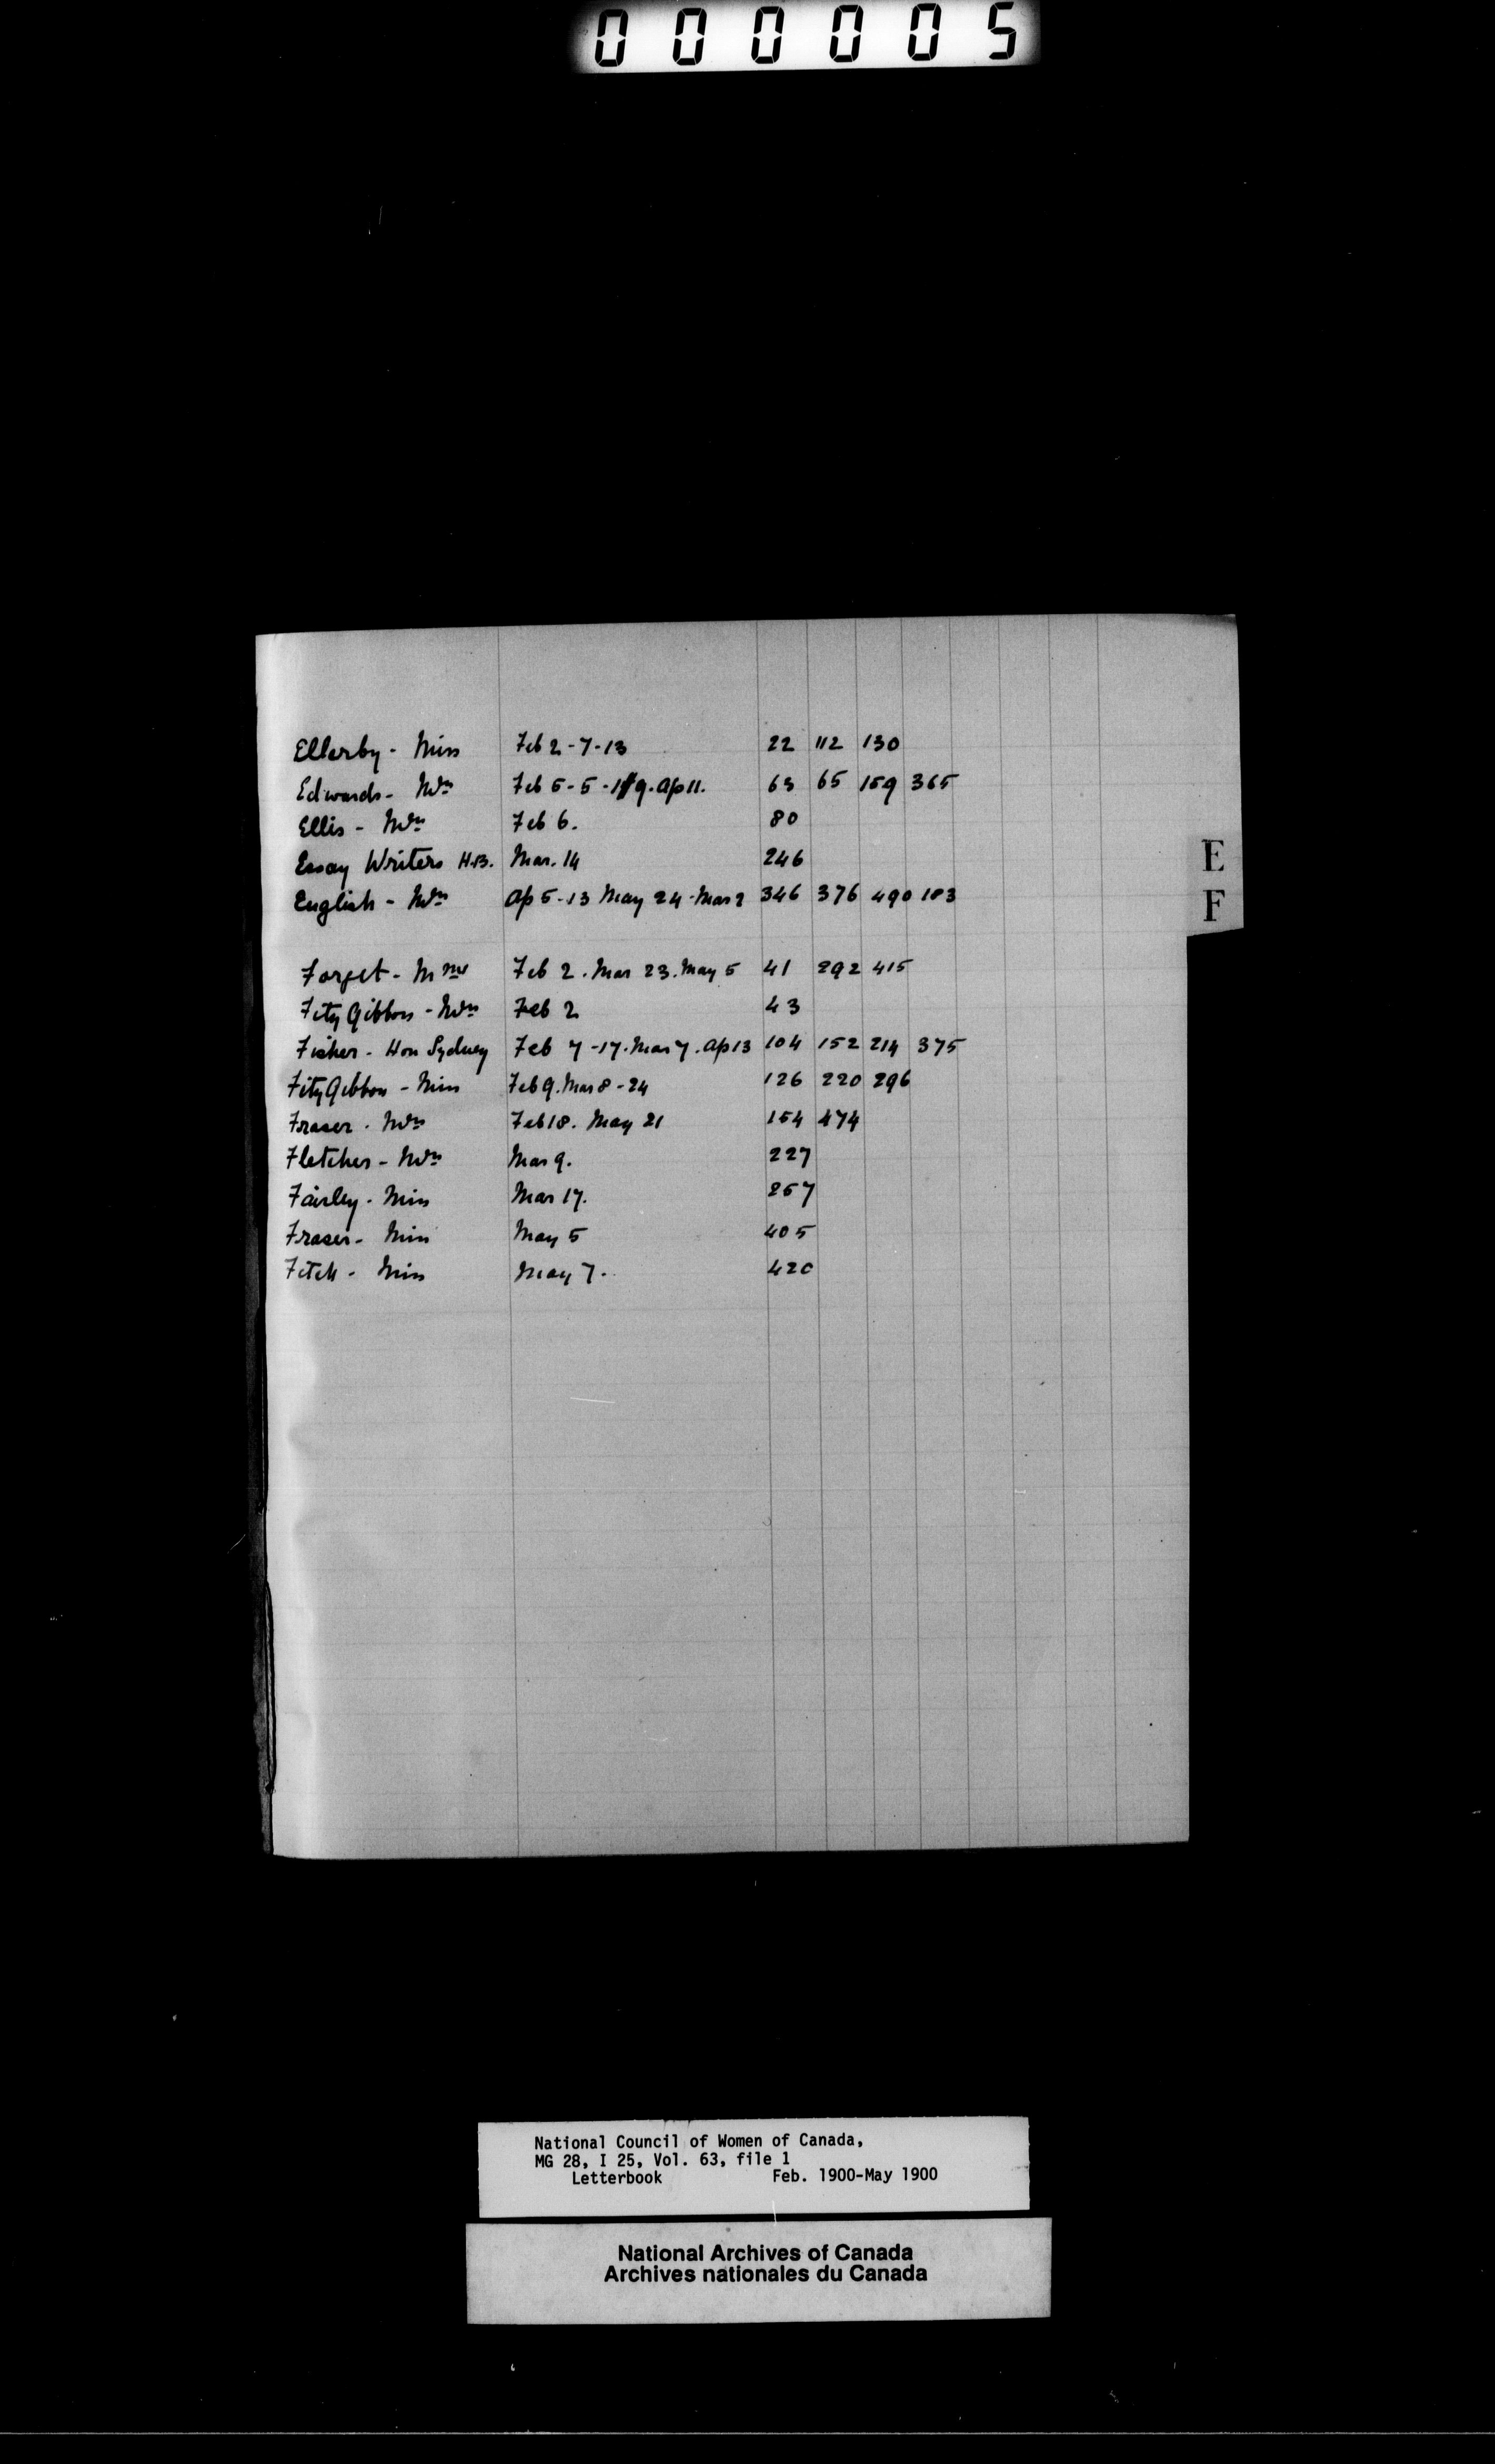 000005
Ellerby - Miss Feb 2 - 7 - 13 22 112 130
Edwards - Mrs Feb 5 - 5 - 19. Ap 11. 63 65 159 365
Ellis - Mrs Feb 6. 80
Essay Writers H.B. Mar. 14 246
English - Mrs Ap 5 - 13 May 24 - Mar 2 346 376 490 183
E
F
Forget - Mme Feb 2. Mar 23. May 5 41 292 415
FitzGibbon - Mrs Feb 2 43
Fisher - Hon Sydney Feb 7 - 17. Mar 7. Ap 13 104 152 214 375
FitzGibbon - Miss Feb 9. Mar 8 - 24 126 220 296
Fraser - Mrs Feb 18. May 21 154 474
Fletcher - Mrs Mar 9. 227
Fairley - Miss Mar 17. 257
Fraser - Miss May 5 405
Fitch - Miss May 7. 420
National Council of Women of Canada,
MG 28, I 25, Vol. 63, file 1
Letterbook Feb. 1900-May 1900
National Archives of Canada
Archives nationales du Canada